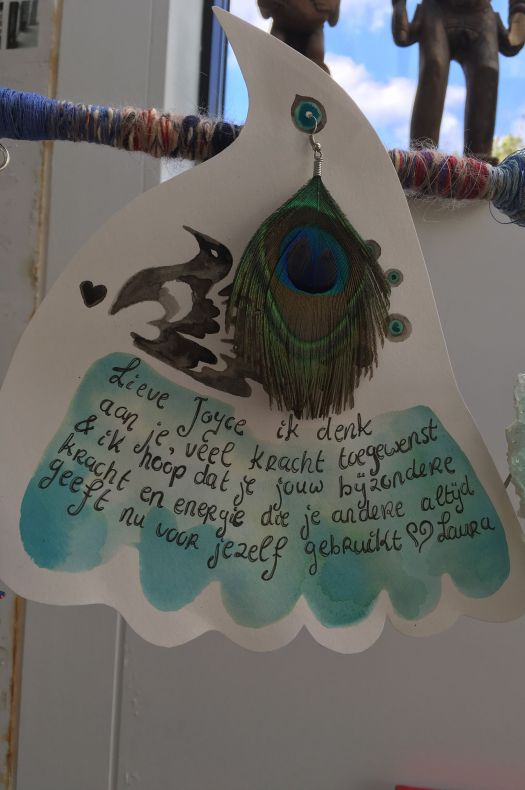 Lieve Joyce ik denk
aan je, veel kracht toegewenst
& ik hoop dat je jouw bijzondere
kracht en energie die je andere altijd
geeft nu voor jezelf gebruikt ♡♡ Laura